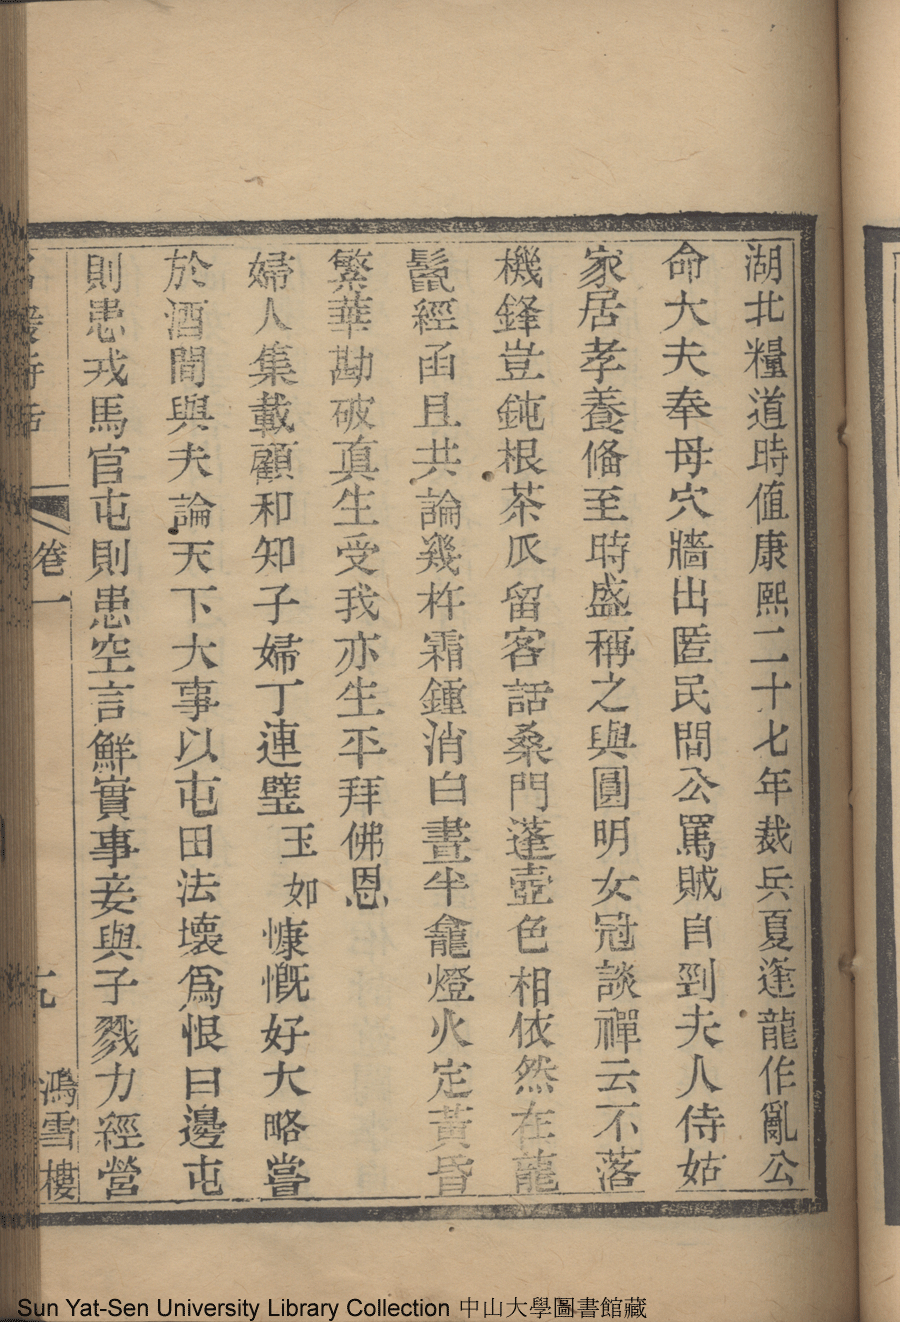 湖北糧道時值康熙二十七年裁兵夏逢龍作亂公
命大夫奉母穴牆出匿民間公罵賊自剄夫人侍姑
家居孝養俻至時盛稱之與圓明女冠談禪云不落
機鋒豈鈍根茶瓜留客話桑門蓬壺色相依然在龍
鬛經函且共論幾杵霜鍾消白晝半龕燈火定黃昏
繁華勘破真生受我亦生平拜佛恩
婦人集載顧和知子婦丁連璧玉如慷慨好大略嘗
於酒間與夫論天下大事以屯田法壞爲恨曰邊屯
則患戎馬官屯則患空言鮮實事妾與子戮力經營
名媛詩話 卷一 九 鴻雪樓
Sun Yat-Sen University Library Collection 中山大學圖書館藏